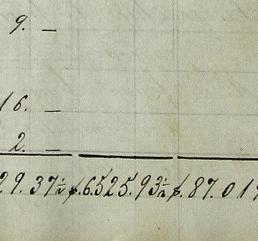 9. —
16. —
2. —
29.37½ $.6.525.93½ $.87.01